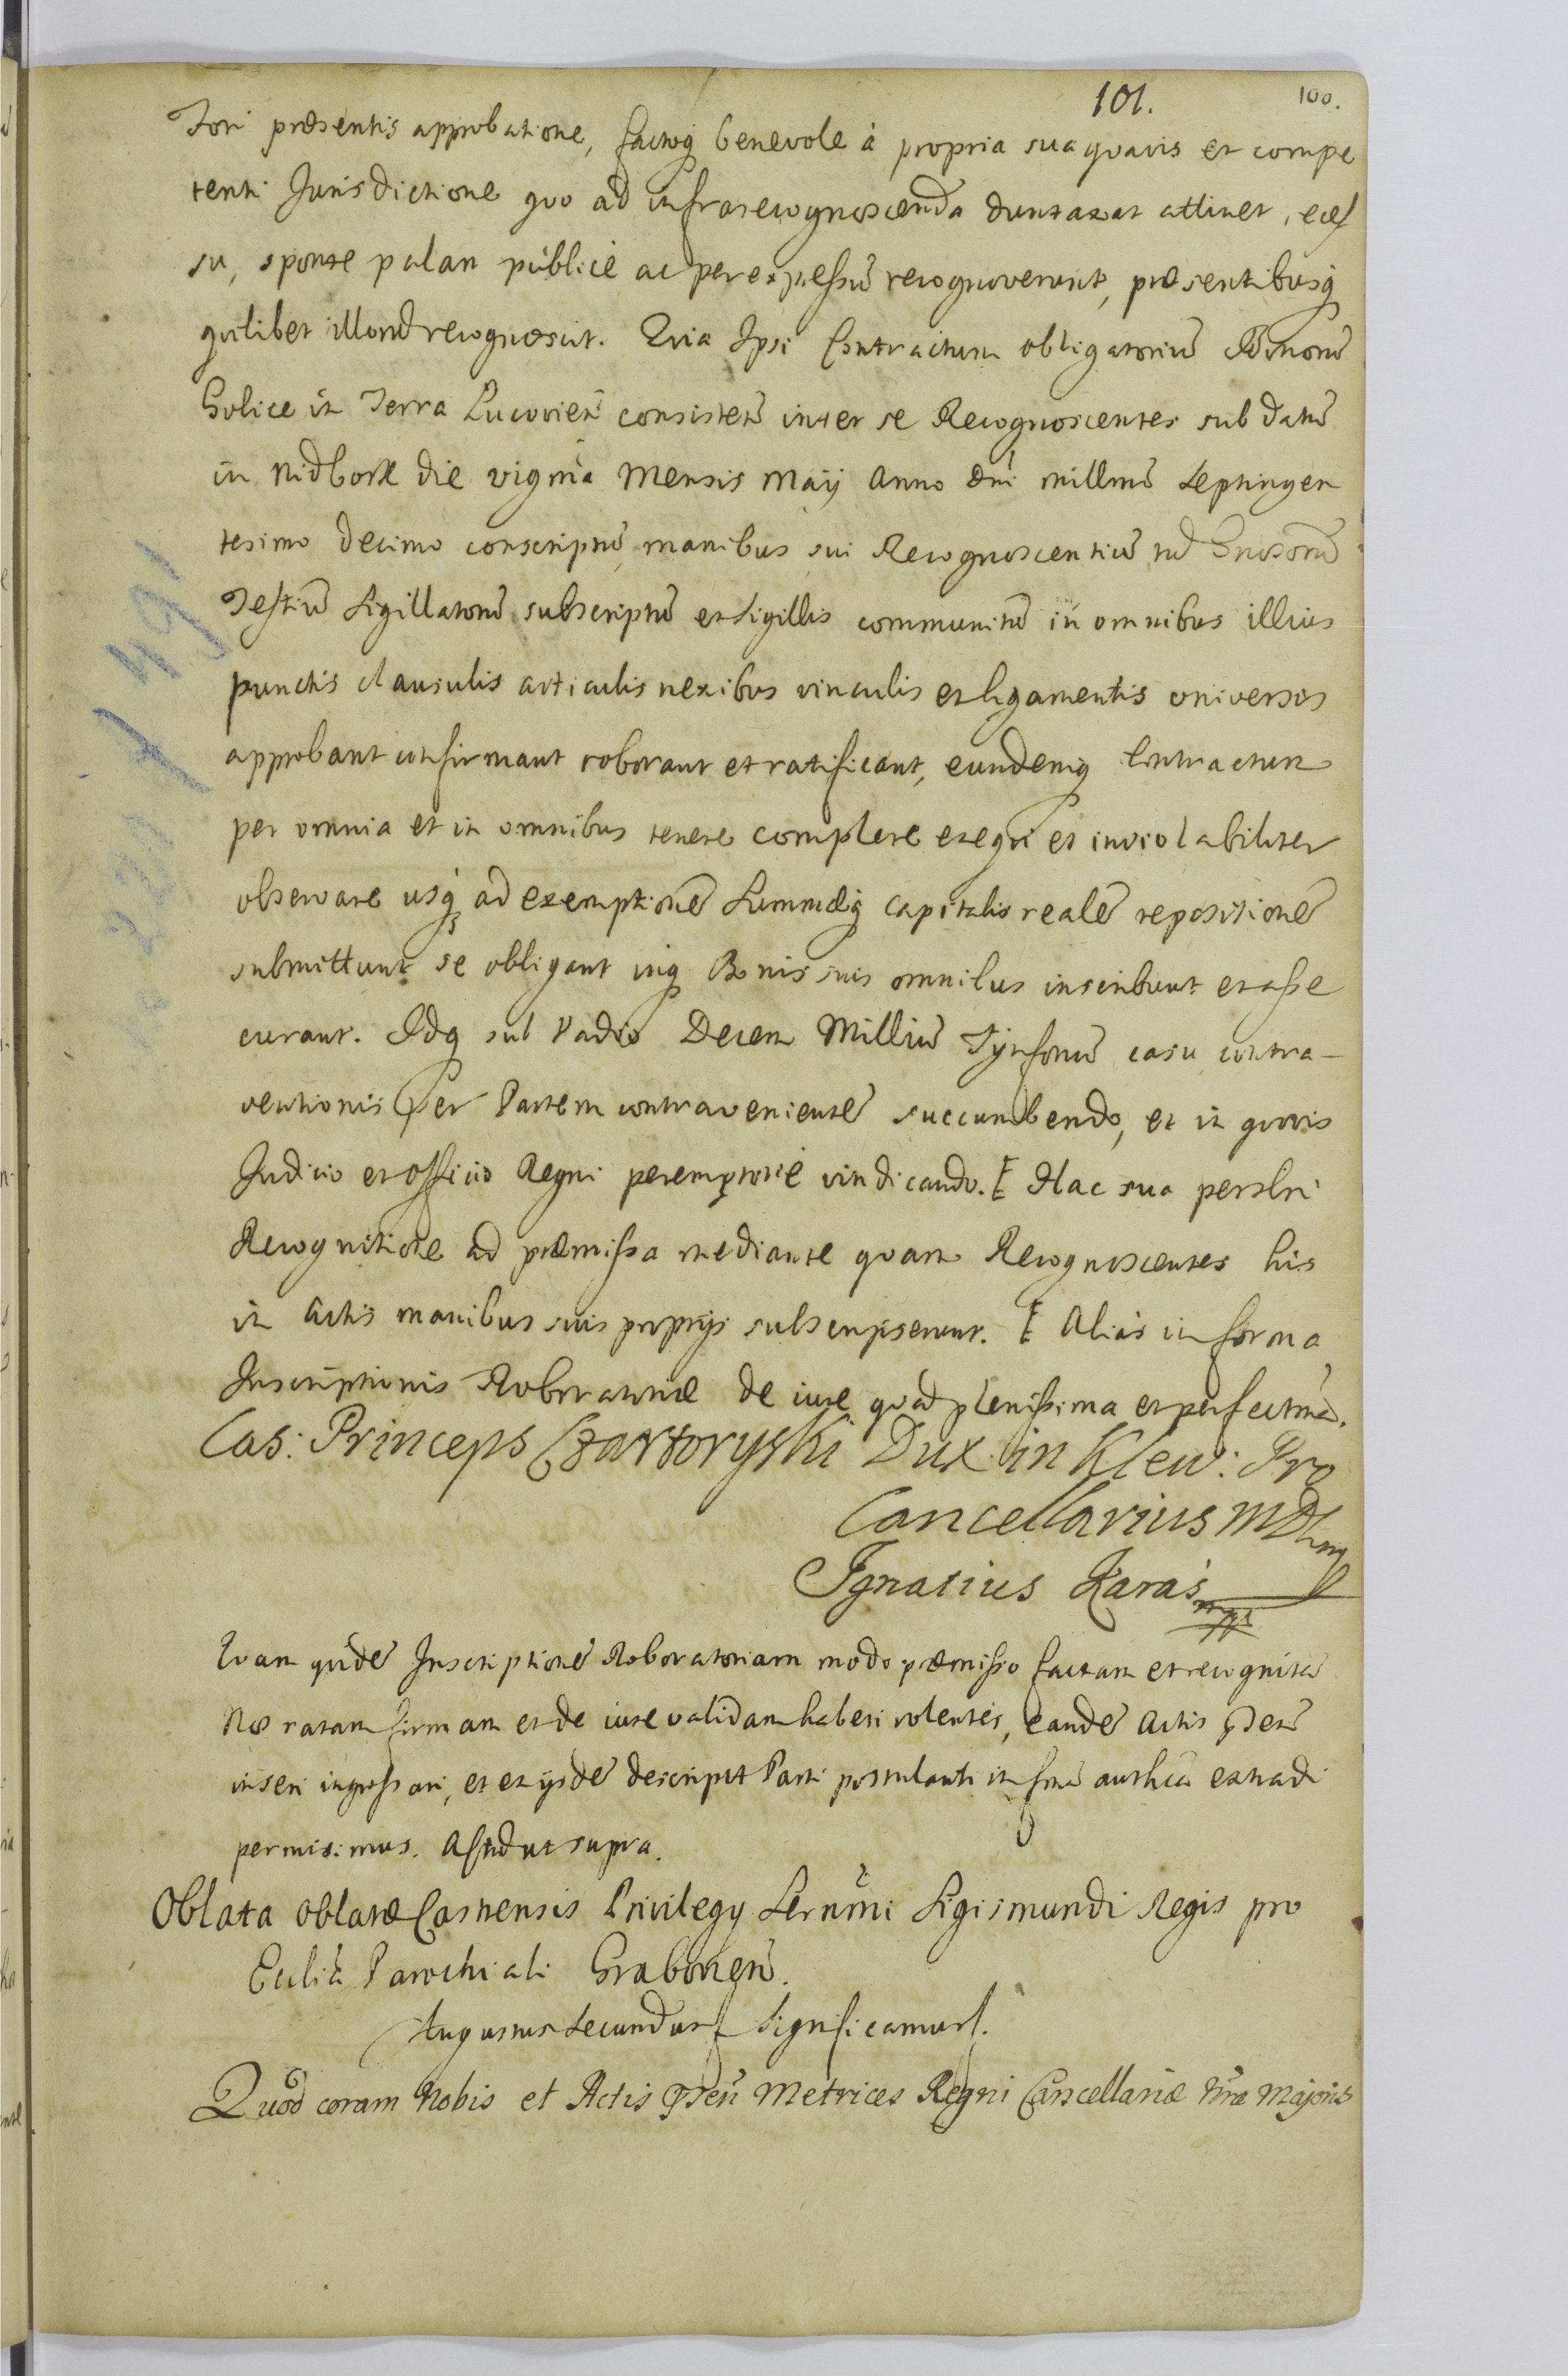 101.
100.
Fori præsentis approbatione, factoq benevole à propria sua quavis et compe
tenti Jurisdictione quo ad infrarecognoscenda duntaxat attinet, reces
su, sponte palam públicè ac per expressũ recognoverunt, præsentibusq
quilibet illorũ recognoscit. Quia Ipsi Contractum obligatoriũ Bonorũ
Gulice in Terra Lucovien̄ consisteñ inter se Recognoscentes sub datũ
in Nidbork die vigma Mensis Maÿ Anno Dñi millmõ Septingen
tesimo decimo conscriptũ manibus sui Recognoscentiũ tũ Gnosorũ
Testiũ Sigillatorũ subscriptũ et Sigillis communitũ in omnibus illius
punctis clausulis articulis nexibus vinculis et ligamentis universis
approbant confirmant roborant et ratificant, eundemq Contractum
per omnia et in omnibus tenere complere exequi et inviolabiliter
observare usq ad exemptionẽ Summæq capitalis realẽ repositionẽ
submittunt se obligant inq Bonis suis omnibus inscribunt et asse
curant. Idq sub Vadio Decem Milliũ Tynfonũ casu contra-
ventionis per Partem contravenientẽ succumbendo, et in quovis
Judicio et Officio Regni peremptoriè vindicando. E Hac sua
Recognitione ad præmissa mediante quam Recognoscentes his
in Actis manibus suis proprÿs subscripserunt. E Aliàs in forma
Inscriptionis Roboratoriæ de iure quad plenissima et perfectmã.
Cas: Princeps Czartoryski Dux in Klew: Pro
Cancellarius MDL mp
Ignatius Karaś mpp
Quam quidẽ Inscriptionẽ Roboratoriam modo præmisso factam et recognitã
Nos ratam firmam et de iure validam haberi volentes, eandẽ Actis pñteñ
inseri ingrossari, et ex ÿsdẽ descript Parti postulanti in formã authcã extradi
permisimus. Actũ ut supra.
Oblata oblatæ Castrensis Privilegÿ Sernmi Sigismundi Regis pro
Ecclia Parochiali Grabovieñ.
Augustus Secundus Significamus.
Quod coram Nobis et Actis pñteñ Metrices Regni Cancellariæ Nræ Majoris